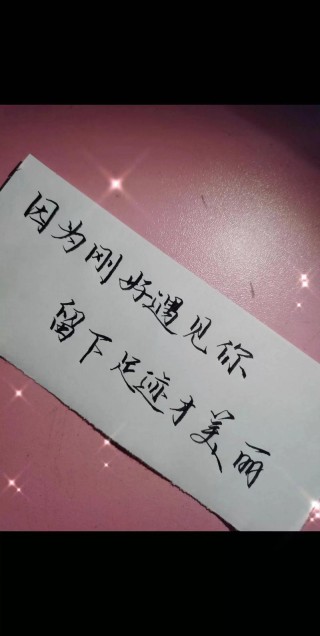 因为刚好遇见你
留下足迹才美丽